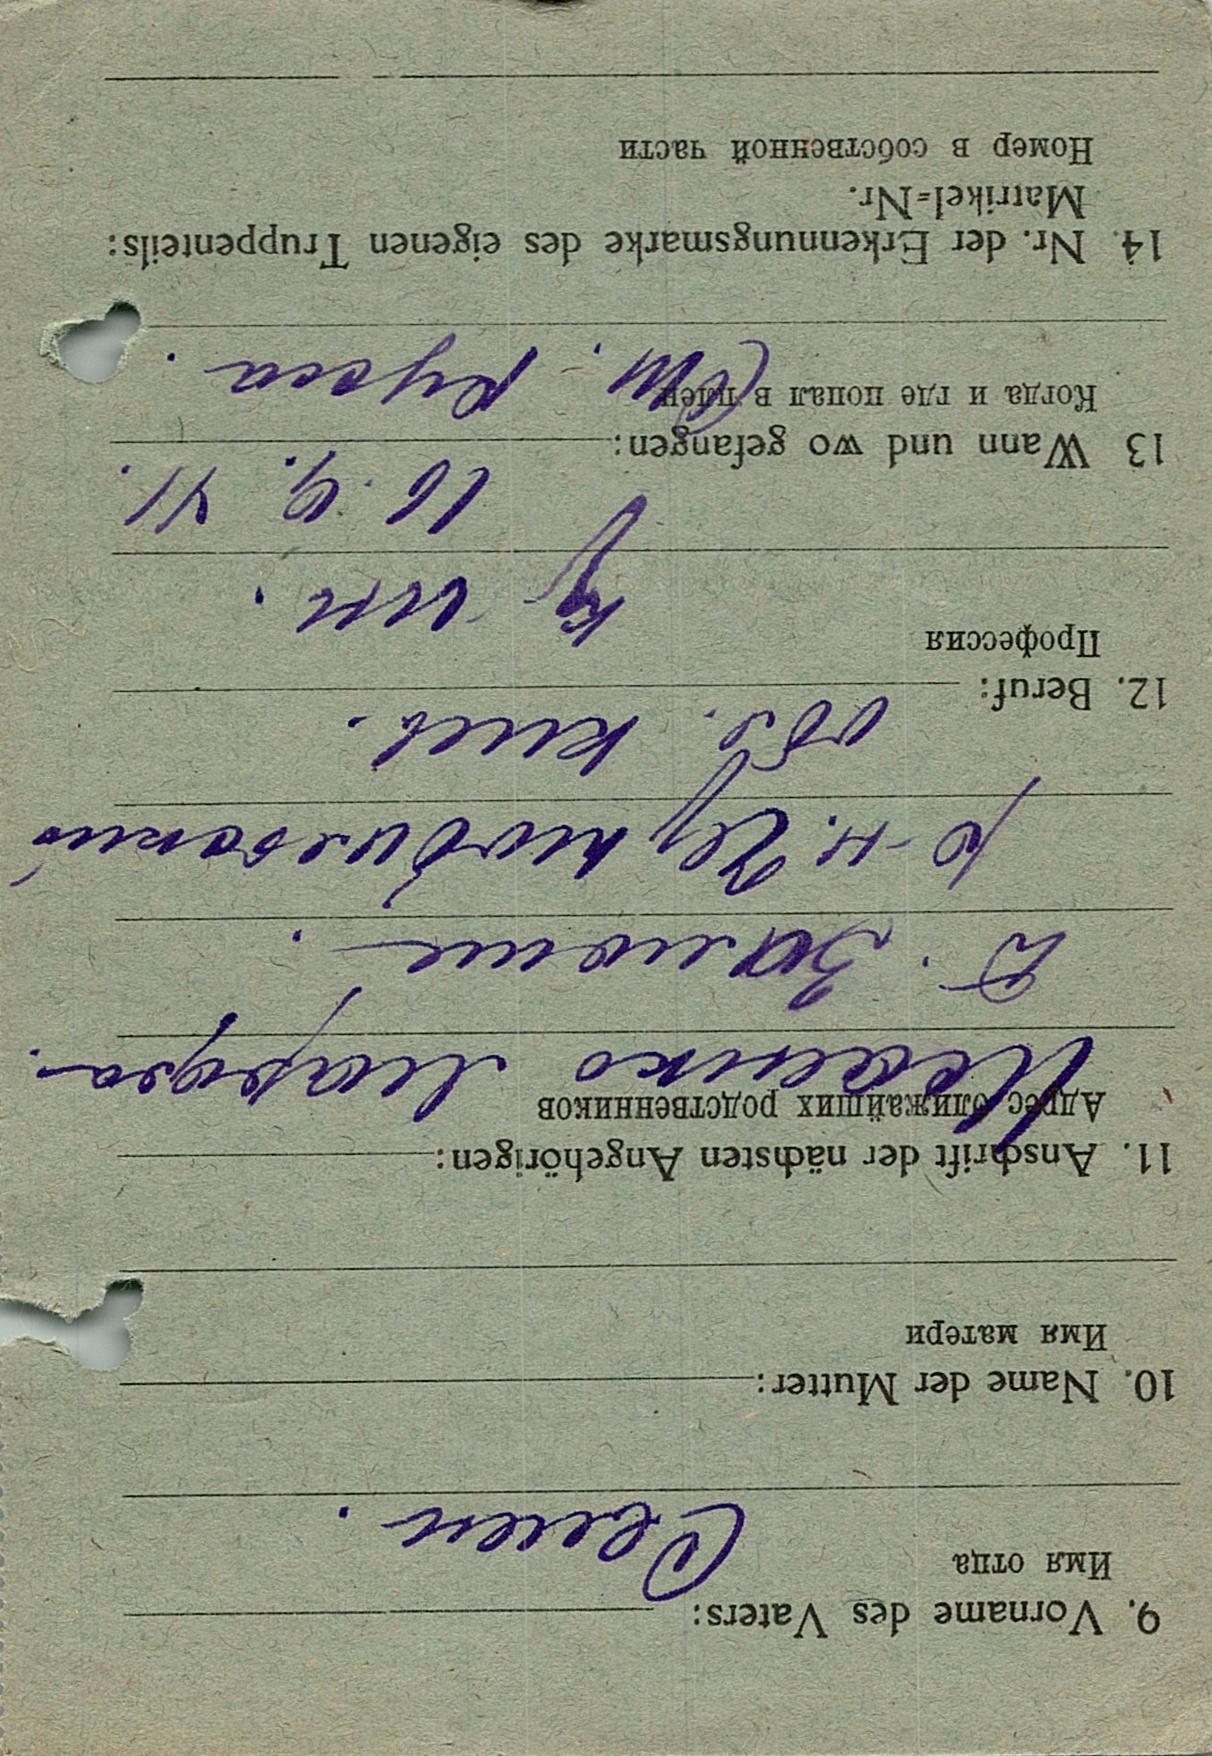 9. Vorname des Vaters:
Имя отца
Семен.
10. Name der Mutter:
Имя матери
11. Anschrift der nächsten Angehörigen:
Адрес ближайших родственников
Ивенко Марфа.
с.
р-н.
обл. Киев.
12. Beruf:
Профессия
13 Wann und wo gefangen:
16. 9. 41.
Когда и где попал в плен
14. Nr. der Erkennungsmarke des eigenen Truppenteils:
Matrikel=Nr.
Номер в собственной части